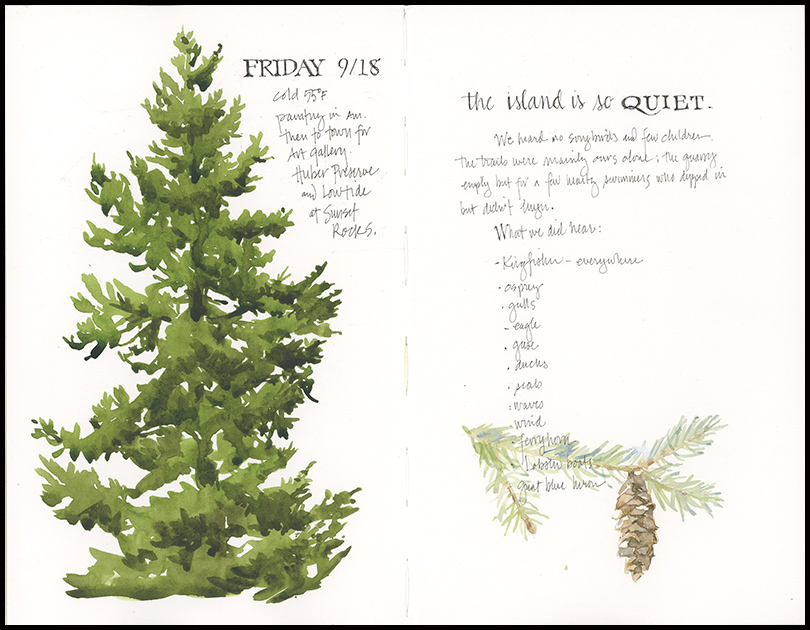 FRIDAY 9/18
cold 55°F
painting in am.
then to town for
Art gallery.
Huber Preserve
and Low tide
at Sunset
Rocks.
the island is so QUIET.
We heard no songbirds and few children.
The trails were mainly ours alone; the quarry
empty but for a few hearty swimmers who dipped in
but didn't linger.
What we did hear:
- Kingfisher - everywhere
- osprey
- gulls
- eagle
- geese
- ducks
- seals
- waves
- wind
- ferry horn
- Lobster boats
great blue heron